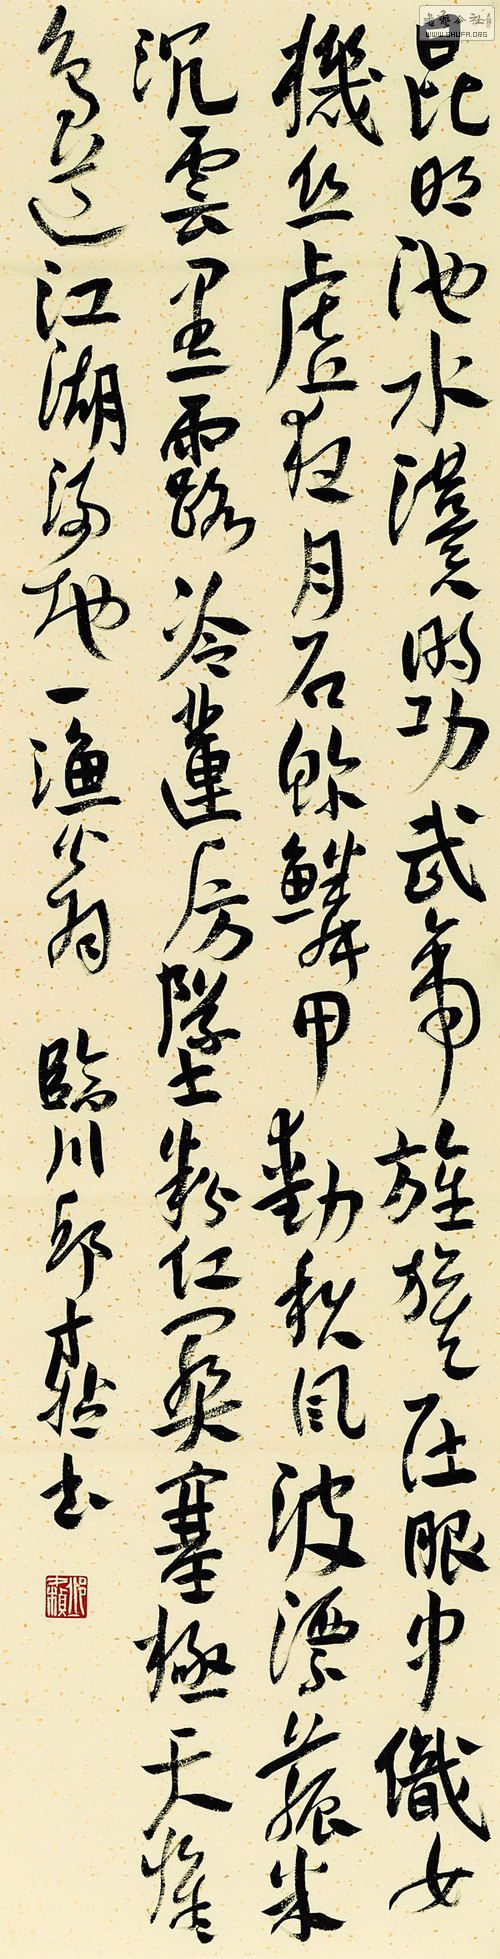 昆明池水漢時功武帝旌旗在眼中織女
機絲虛夜月石鯨鱗甲動秋風波漂菰米
沉雲黑露冷蓮房墜粉紅關塞極天惟
鳥道江湖滿地一漁翁 臨川邱才楨書
WWW.SHUFA.ORG